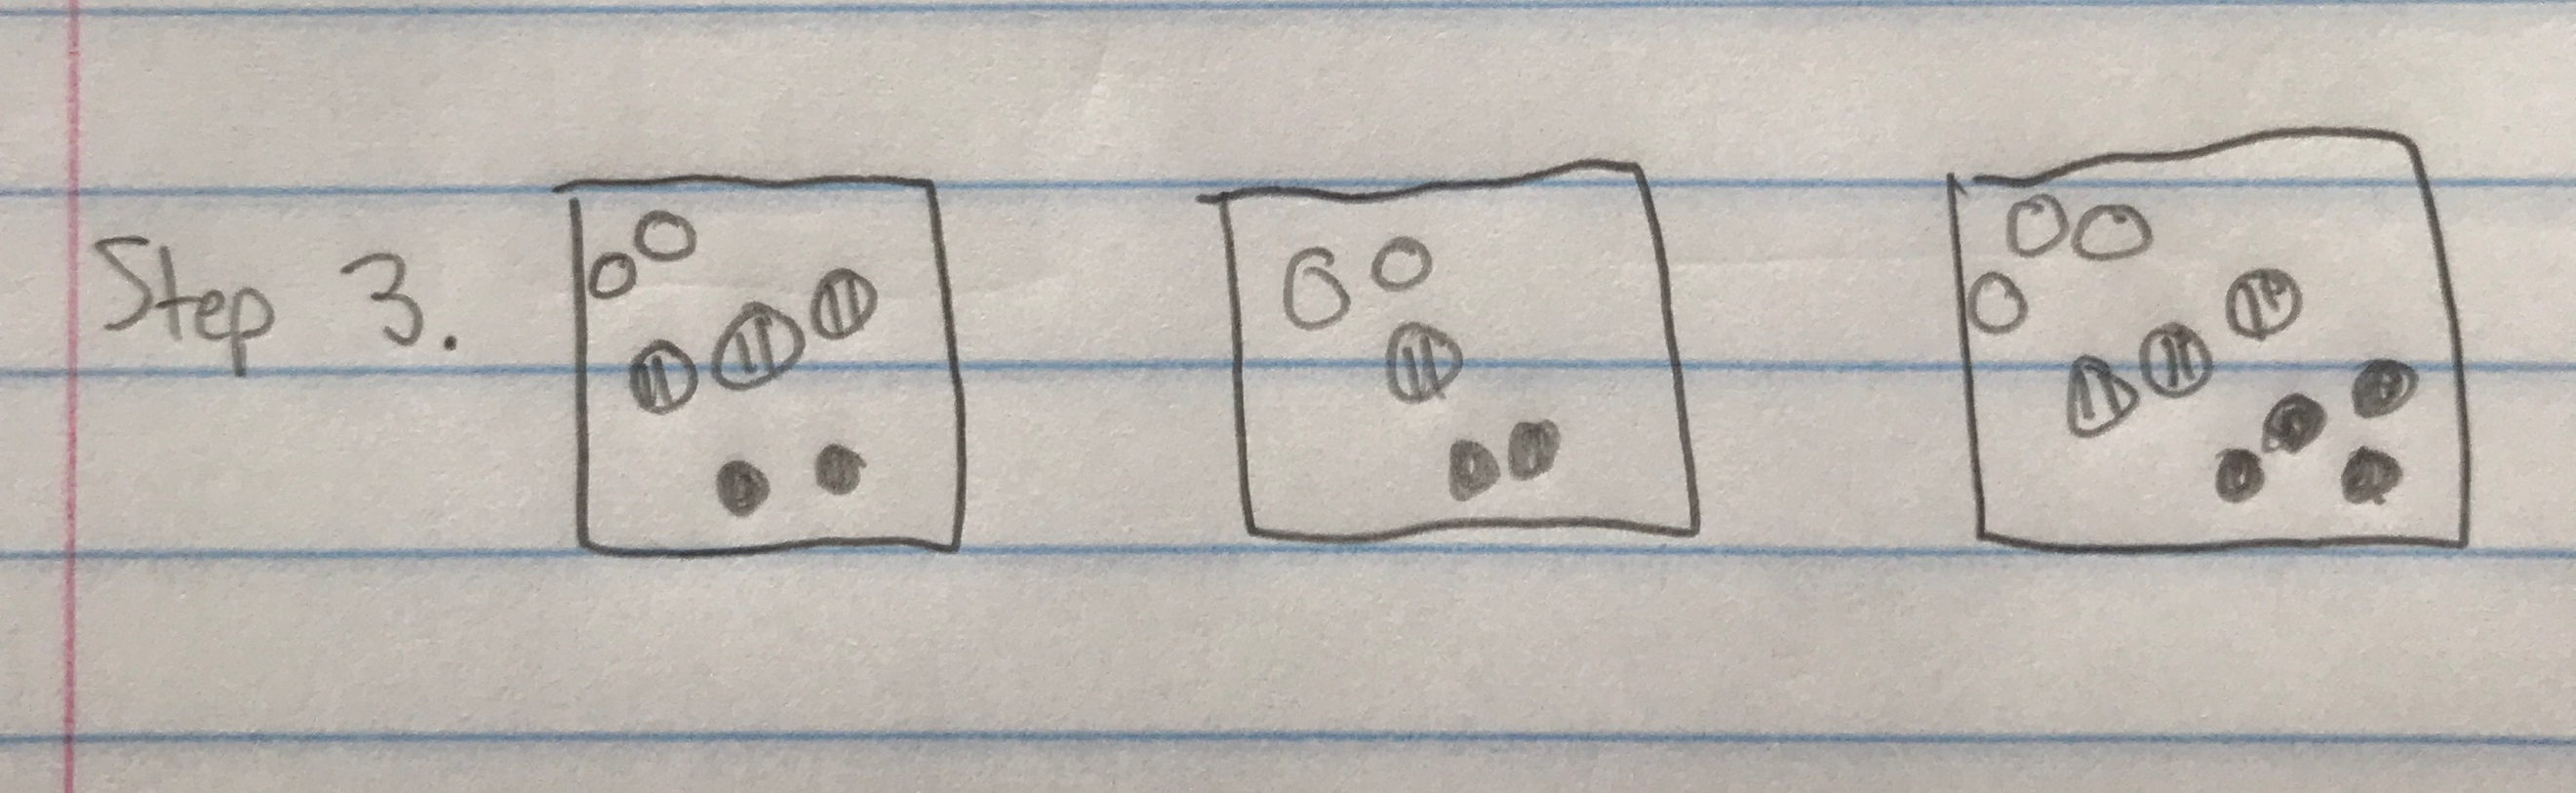 Step 3.